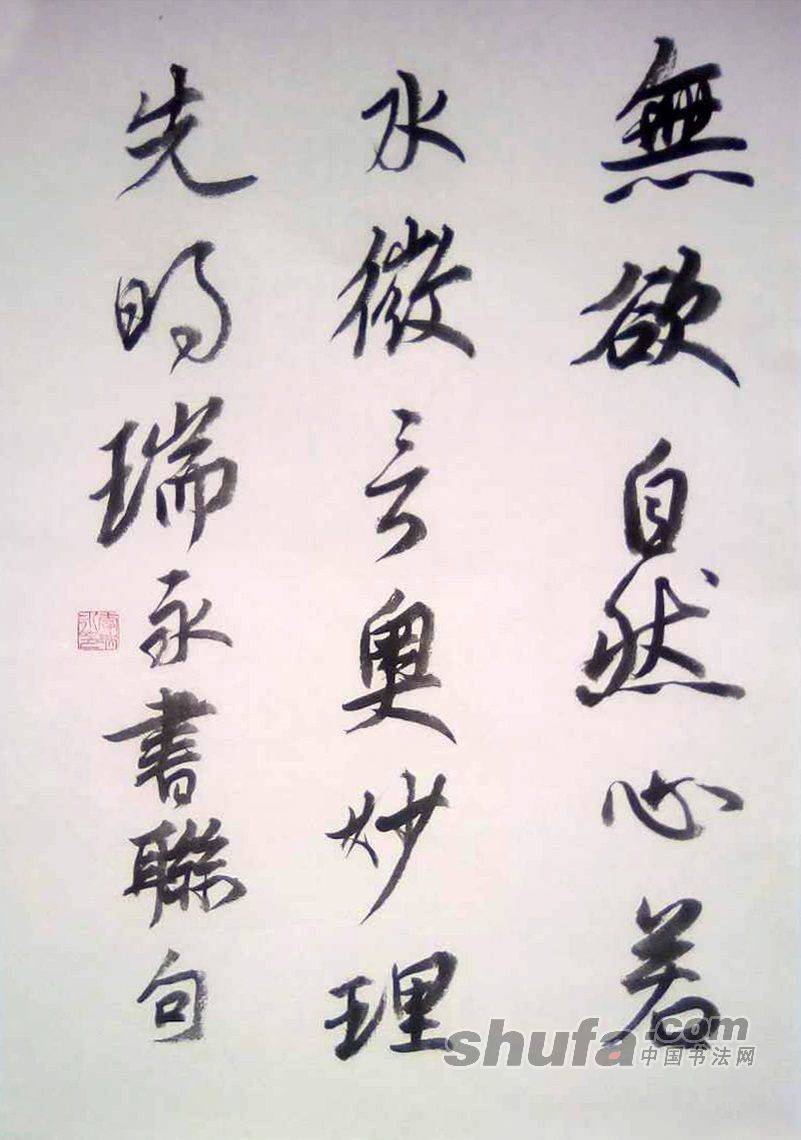 無欲自然心若
水微言奥妙理
先明瑞永書聯句
shufa.com
中国书法网